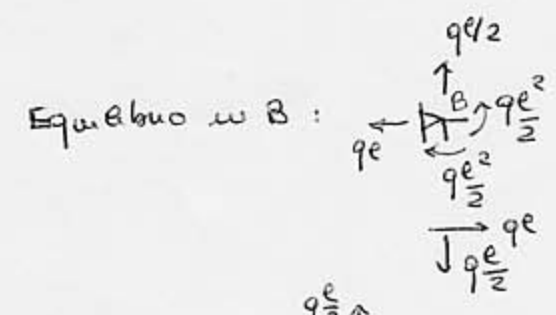 qℓ/2
Equilibrio in B :
B
qℓ
qℓ²/2
qℓ²/2
qℓ
qℓ/2
qℓ/2